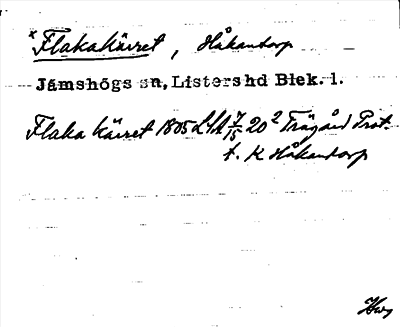 *Flakakäret, Håkantorp
Jämshögs sn, Listers hd Blek. l.
Flaka käret 1805 LSA 7/15 20² Trägård Prot.
t. K Håkantorp